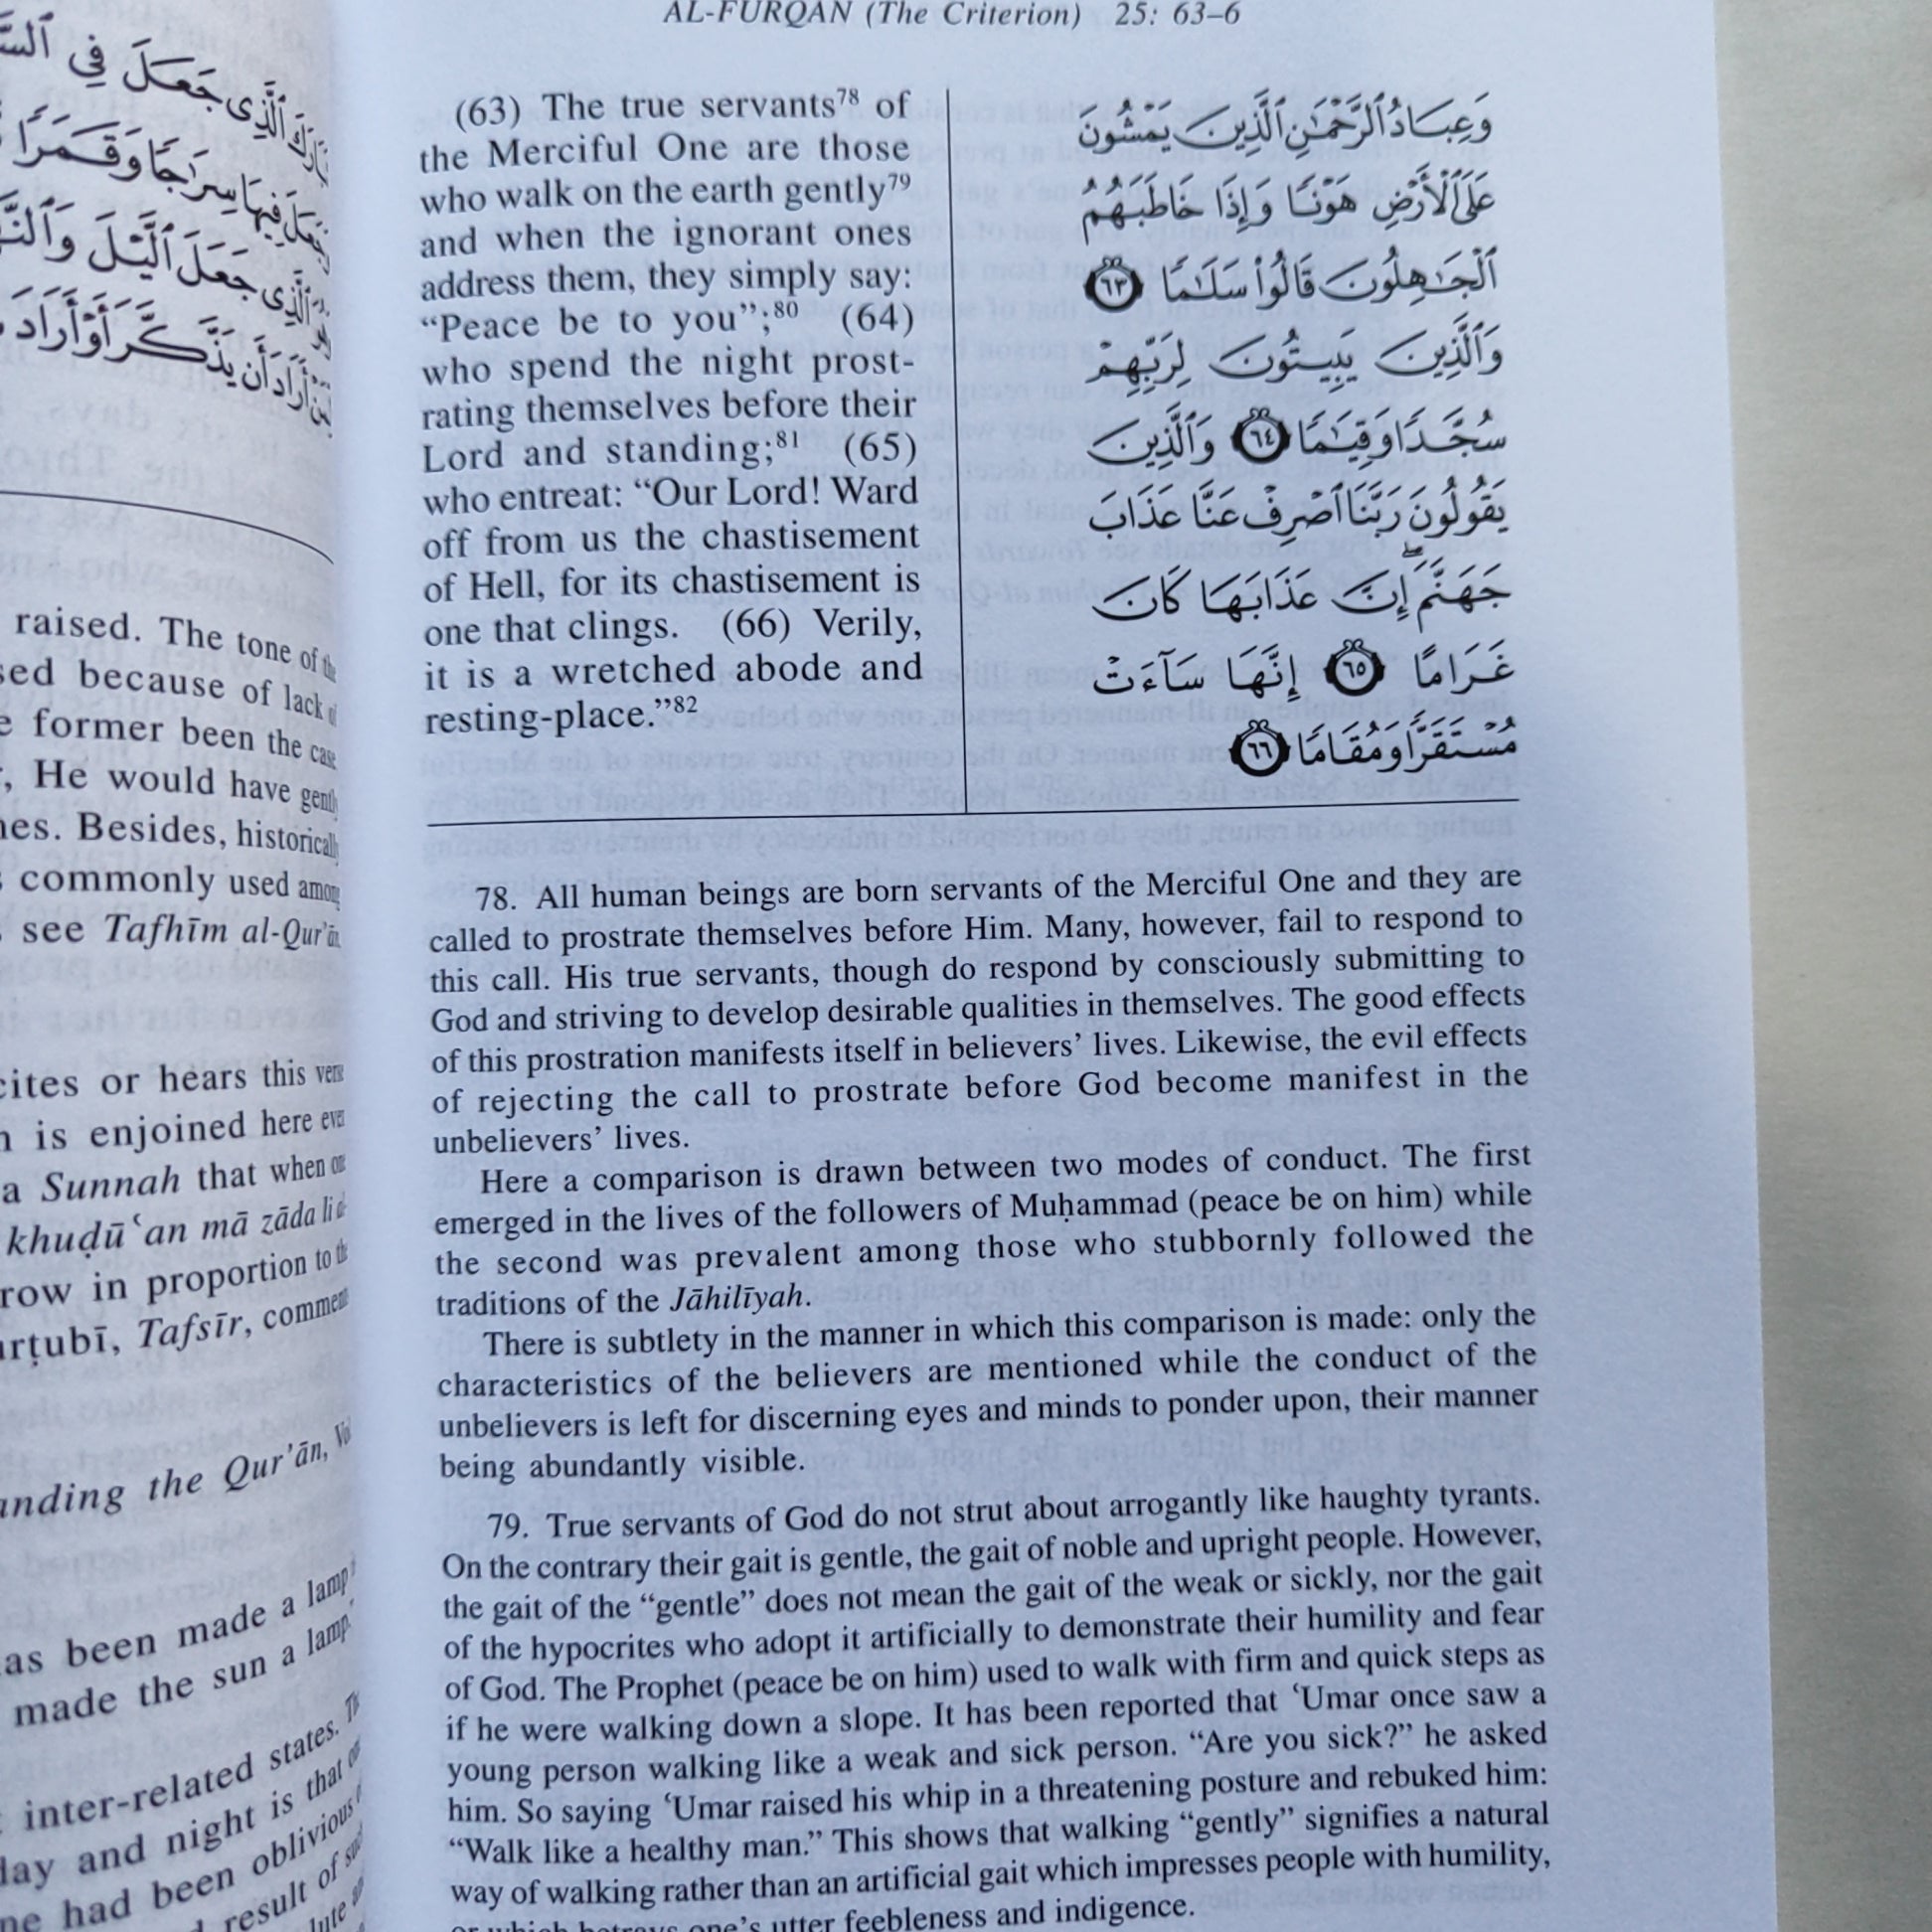 بَارَكَ ٱلَّذِى جَعَلَ فِى
سِرَٰجًا وَقَمَرًا
ٱلَّذِى جَعَلَ ٱلَّيْلَ
أَرَادَ أَن يَذَّكَّرَ أَوْ أَرَادَ
raised. The tone of
because of lack
former been the
, He would have
Besides, historically
commonly used among
see Tafhīm al-Qur'ān,
or hears this
is enjoined here
a Sunnah that when
khuḍū‘an mā zāda
in proportion to
Tafsīr,
the Qur'ān,
been made a lamp
made the sun a lamp
inter-related states.
and night is that
had been oblivious
result of
AL-FURQĀN (The Criterion) 25: 63–6
(63) The true servants78 of
the Merciful One are those
who walk on the earth gently79
and when the ignorant ones
address them, they simply say:
“Peace be to you”;80 (64)
who spend the night prost-
rating themselves before their
Lord and standing;81 (65)
who entreat: “Our Lord! Ward
off from us the chastisement
of Hell, for its chastisement is
one that clings. (66) Verily,
it is a wretched abode and
resting-place.”82
وَعِبَادُ ٱلرَّحْمَٰنِ ٱلَّذِينَ يَمْشُونَ
عَلَى ٱلْأَرْضِ هَوْنًا وَإِذَا خَاطَبَهُمُ
ٱلْجَٰهِلُونَ قَالُوا۟ سَلَٰمًا ٦٣
وَٱلَّذِينَ يَبِيتُونَ لِرَبِّهِمْ
سُجَّدًا وَقِيَٰمًا ٦٤ وَٱلَّذِينَ
يَقُولُونَ رَبَّنَا ٱصْرِفْ عَنَّا عَذَابَ
جَهَنَّمَ ۖ إِنَّ عَذَابَهَا كَانَ
غَرَامًا ٦٥ إِنَّهَا سَآءَتْ
مُسْتَقَرًّا وَمُقَامًا ٦٦
78. All human beings are born servants of the Merciful One and they are
called to prostrate themselves before Him. Many, however, fail to respond to
this call. His true servants, though do respond by consciously submitting to
God and striving to develop desirable qualities in themselves. The good effects
of this prostration manifests itself in believers’ lives. Likewise, the evil effects
of rejecting the call to prostrate before God become manifest in the
unbelievers’ lives.
Here a comparison is drawn between two modes of conduct. The first
emerged in the lives of the followers of Muḥammad (peace be on him) while
the second was prevalent among those who stubbornly followed the
traditions of the Jāhilīyah.
There is subtlety in the manner in which this comparison is made: only the
characteristics of the believers are mentioned while the conduct of the
unbelievers is left for discerning eyes and minds to ponder upon, their manner
being abundantly visible.
79. True servants of God do not strut about arrogantly like haughty tyrants.
On the contrary their gait is gentle, the gait of noble and upright people. However,
the gait of the “gentle” does not mean the gait of the weak or sickly, nor the gait
of the hypocrites who adopt it artificially to demonstrate their humility and fear
of God. The Prophet (peace be on him) used to walk with firm and quick steps as
if he were walking down a slope. It has been reported that ‘Umar once saw a
young person walking like a weak and sick person. “Are you sick?” he asked
him. So saying ‘Umar raised his whip in a threatening posture and rebuked him:
“Walk like a healthy man.” This shows that walking “gently” signifies a natural
way of walking rather than an artificial gait which impresses people with humility,
or which betrays one’s utter feebleness and indigence.